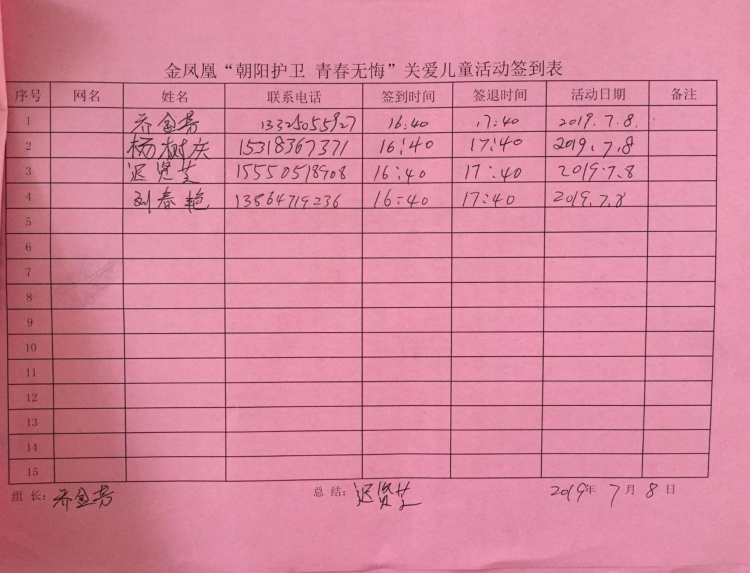 金凤凰“朝阳护卫 青春无悔”关爱儿童活动签到表
序号 网名 姓名 联系电话 签到时间 签退时间 活动日期 备注
1 乔金芳 13325055927 16:40 17:40 2019.7.8.
2 杨树庆 15318367371 16:40 17:40 2019.7.8
3 迟贤芝 15550518908 16:40 17:40 2019.7.8
4 刘春艳 13864719236 16:40 17:40 2019.7.8
5
6
7
8
9
10
11
12
13
14
15
组 长:乔金芳 总 结:迟贤芝 2019年 7月 8日